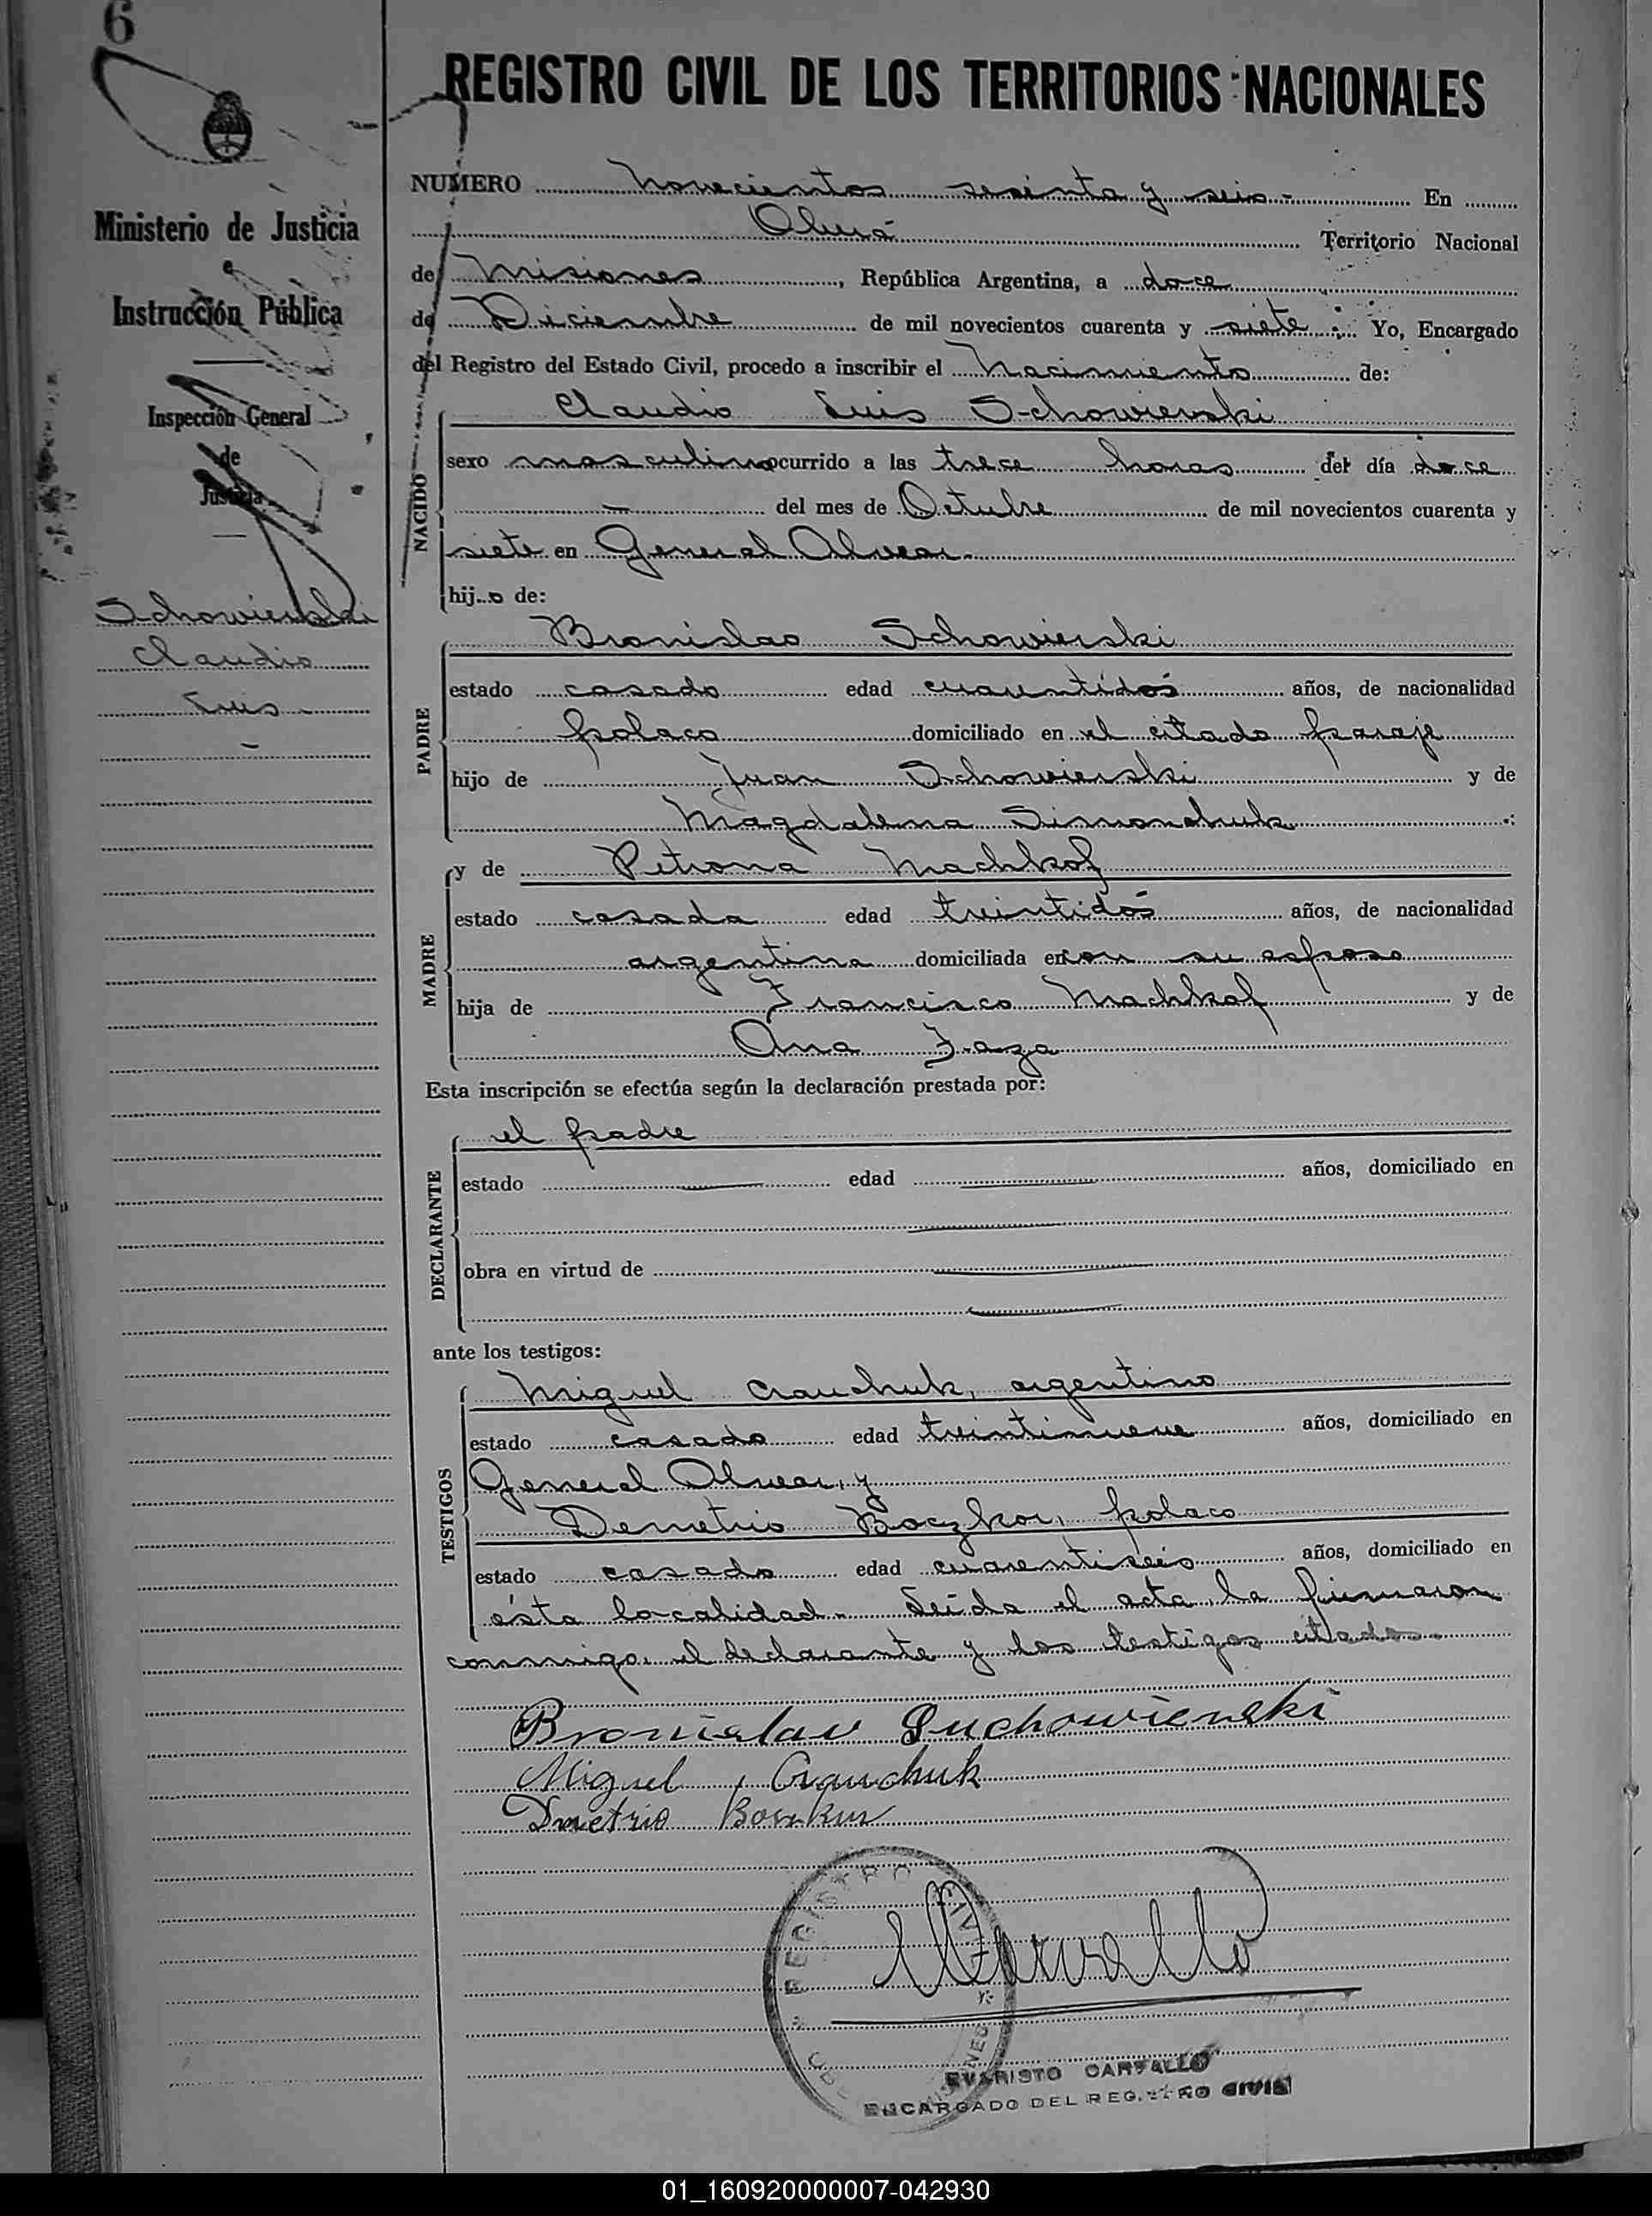 6
REGISTRO CIVIL DE LOS TERRITORIOS NACIONALES
Ministerio de Justicia
e
Instrucción Pública
Inspección General
de
Justicia
Schowierski
Claudio
Luis
NUMERO novecientos sesenta y seis.- En
Oberá Territorio Nacional
de Misiones, República Argentina, a doce
de Diciembre de mil novecientos cuarenta y siete. Yo, Encargado
del Registro del Estado Civil, procedo a inscribir el Nacimiento de:
NACIDO
Claudio Luis Schowierski
sexo masculino ocurrido a las trece horas del día doce
del mes de Octubre de mil novecientos cuarenta y
siete en General Alvear.
hijo de:
PADRE
Bronislao Schowierski
estado casado edad cuarentidós años, de nacionalidad
polaco domiciliado en el citado paraje
hijo de Juan Schowierski y de
Magdalena Simonchuk
MADRE
y de Petrona Machkof
estado casada edad treintidós años, de nacionalidad
argentina domiciliada en con su esposo
hija de Francisco Machkof y de
Ana Zaza
Esta inscripción se efectúa según la declaración prestada por:
DECLARANTE
el padre
estado edad años, domiciliado en
obra en virtud de
ante los testigos:
TESTIGOS
Miguel Crauchuk, argentino
estado casado edad treintinueve años, domiciliado en
General Alvear, y
Demetrio Boczkor, polaco
estado casado edad cuarentiseis años, domiciliado en
ésta localidad. Leída el acta, la firmaron
conmigo, el declarante y los testigos citados.
Bronislav Suchowienski
Miguel Crauchuk
Dmetrio
REGISTRO CIVIL
EVARISTO CARVALLO
ENCARGADO DEL REGISTRO CIVIL
01_160920000007-042930